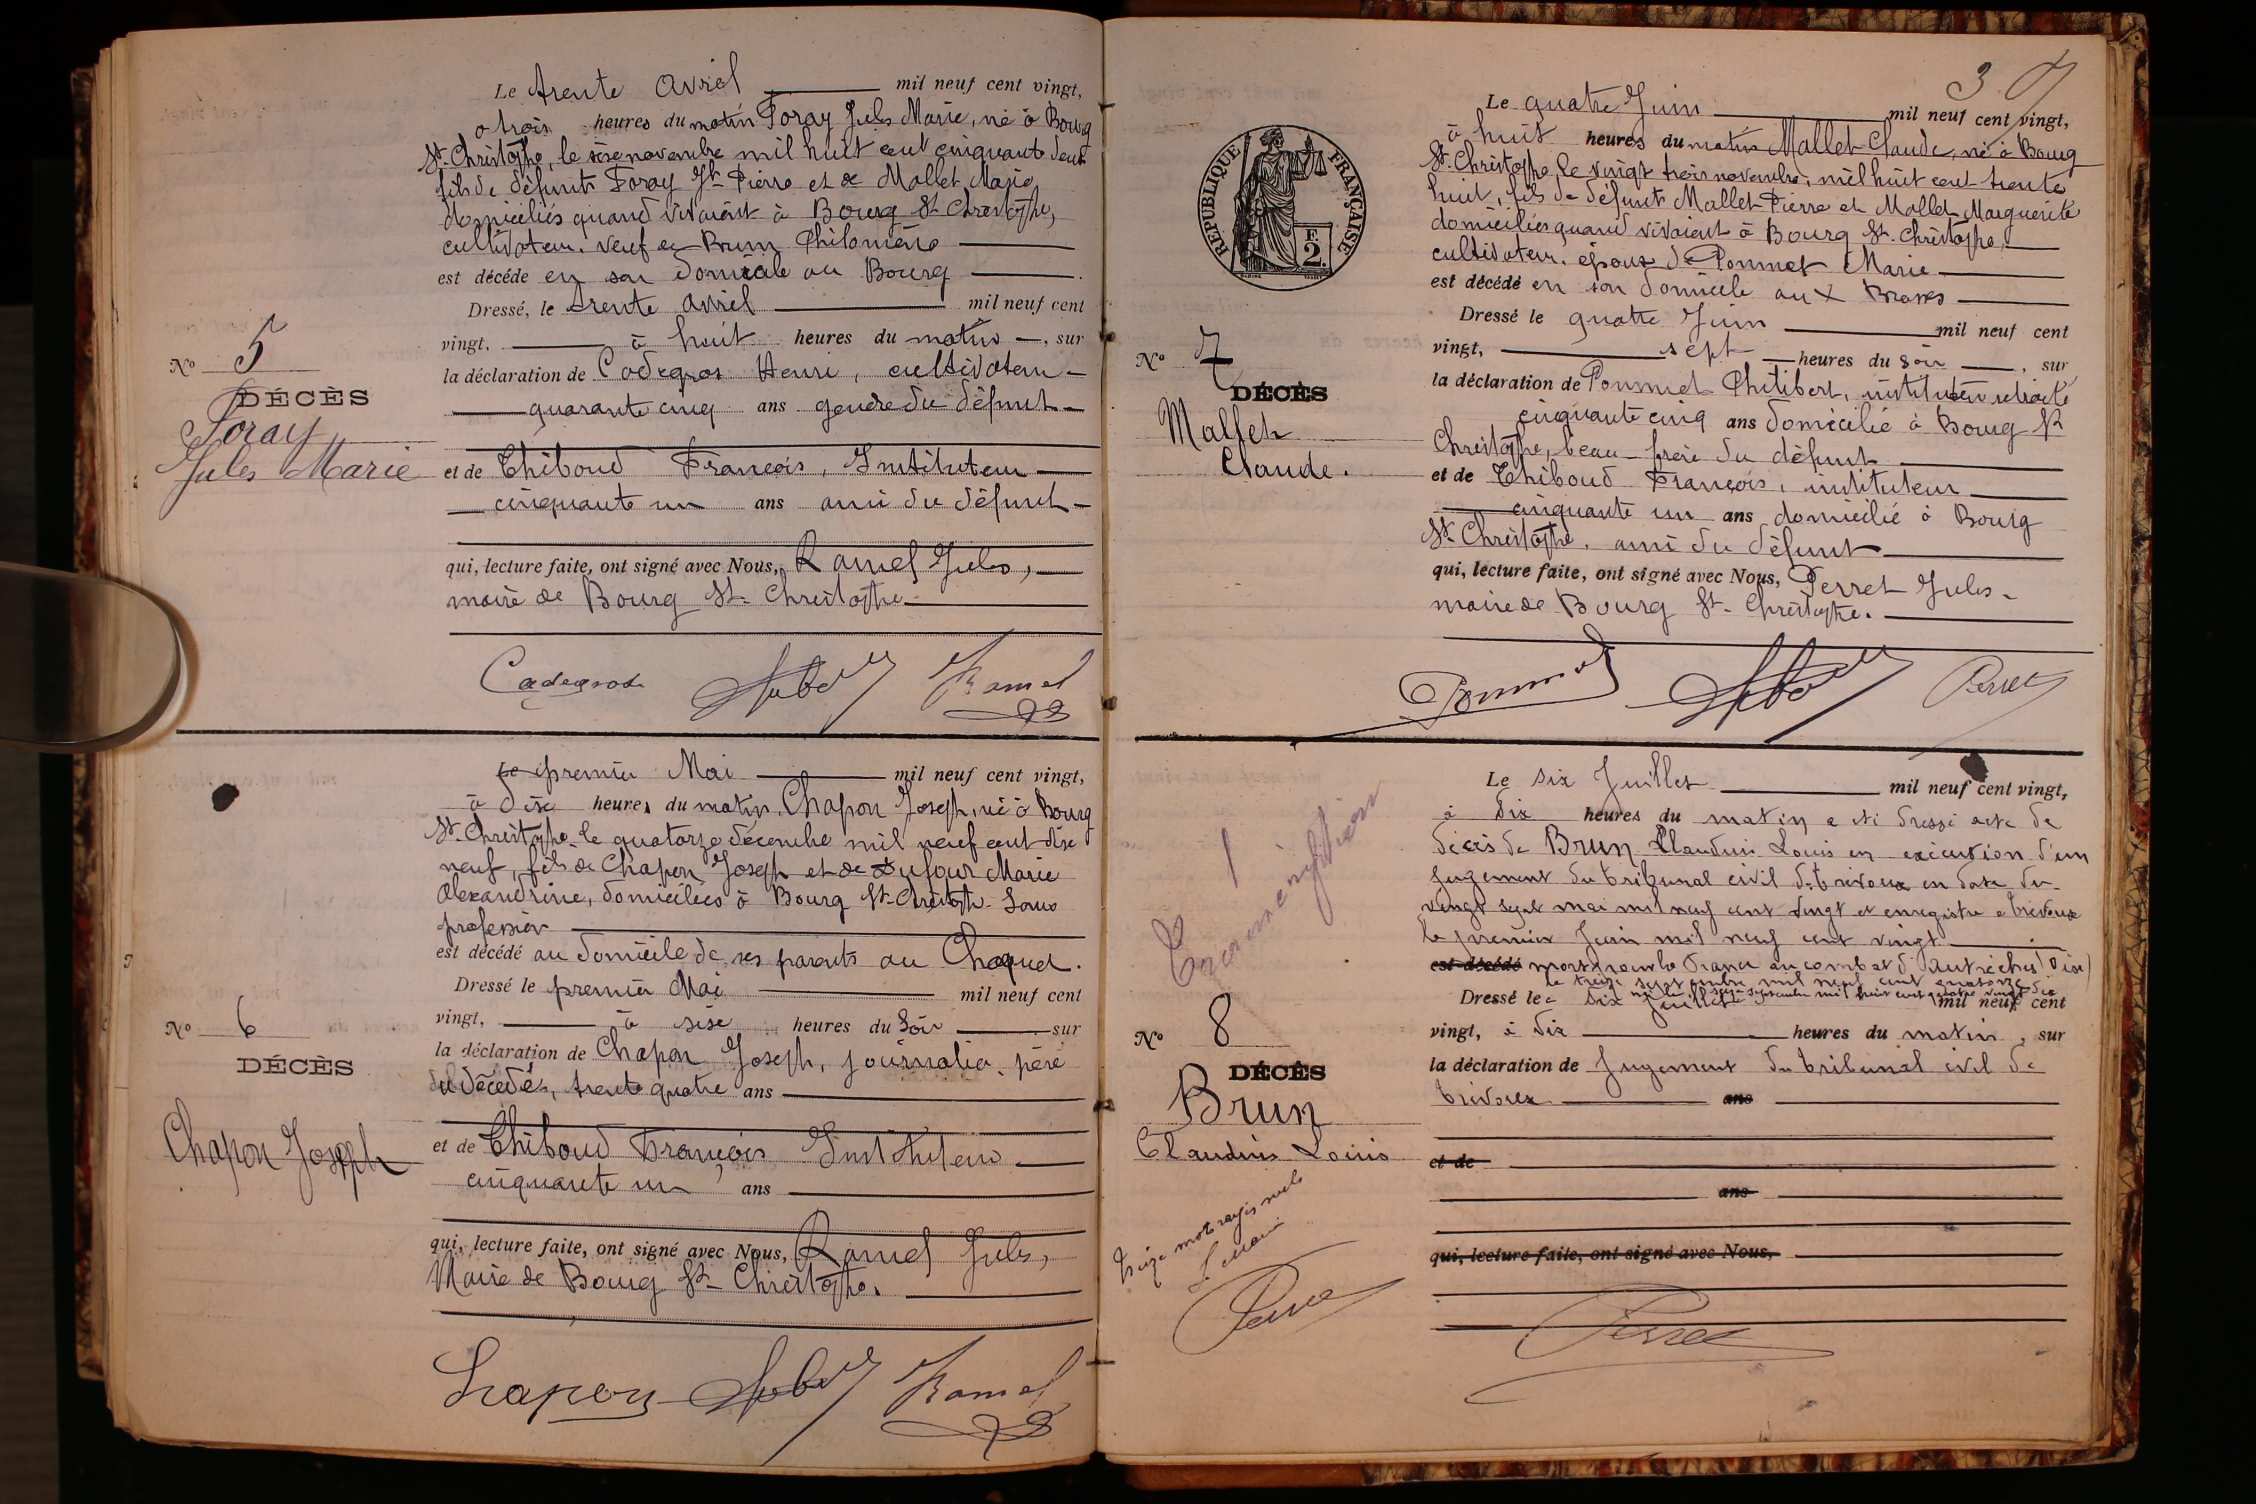 Le trente avril mil neuf cent vingt,
à trois heures du matin Foray Jules Marie, né à Bourg
St Christophe, le seize novembre mil huit cent cinquante deux
fils de défunts Foray Jh Pierre et de Mallet Marie
domiciliés quand vivaient à Bourg St Christophe,
cultivateur, veuf de Brun Philomène
est décédé en son domicile au Bourg.
Dressé, le trente avril mil neuf cent
vingt, à huit heures du matin, sur
la déclaration de Cadegros Henri, cultivateur
quarante cinq ans gendre du défunt
No 5
DÉCÈS
Foray
Jules Marie
et de Thiboud François, Instituteur
cinquante un ans ami du défunt
qui, lecture faite, ont signé avec Nous, Ramel Jules,
maire de Bourg St Christophe
Cadegros Ramel
Le premier Mai mil neuf cent vingt,
à dix heures du matin, Chapon Joseph, né à Bourg
St Christophe le quatorze décembre mil neuf cent dix
neuf, fils de Chapon Joseph et de Dufour Marie
Alexandrine, domiciliés à Bourg St Christophe Sans
profession
est décédé au domicile de ses parents au Chaquet.
Dressé le premier Mai mil neuf cent
vingt, à sise heures du Soir sur
la déclaration de Chapon Joseph, journalier, père
du décédé, trente quatre ans
No 6
DÉCÈS
Chapon Joseph
et de Thiboud François Instituteur
cinquante un ans
qui, lecture faite, ont signé avec Nous, Ramel Jules,
Maire de Bourg St Christophe.
Chapon Ramel
3
RÉPUBLIQUE FRANÇAISE
F.
2.
Le quatre Juin mil neuf cent vingt,
à huit heures du matin Mallet Claude, né à Bourg
St Christophe le vingt trois novembre, mil huit cent trente
huit, fils de défunts Mallet Pierre et Mallet Marguerite
domiciliés quand vivaient à Bourg St Christophe,
cultivateur, époux de Pommet Marie
est décédé en son domicile aux
Dressé le quatre Juin mil neuf cent
vingt, sept heures du soir, sur
la déclaration de Pommet Philibert, instituteur retraité
cinquante cinq ans domicilié à Bourg St
Christophe, beau-frère du défunt
No 7
DÉCÈS
Mallet
Claude.
et de Thiboud François, instituteur
cinquante un ans domicilié à Bourg
St Christophe, ami du défunt
qui, lecture faite, ont signé avec Nous, Perret Jules
maire de Bourg St Christophe.
Pommet Perret
Le six Juillet mil neuf cent vingt,
à dix heures du matin a été dressé acte de
décès de Brun Claudius Louis en exécution d'un
jugement du tribunal civil de trévoux en date du
vingt sept mai mil neuf cent vingt et enregistré a trévoux
le premier Juin mil neuf cent vingt
est décédé mort pour la France au combat d'Autrèches (Oise)
le treize septembre mil neuf cent quatorze
Dressé le six Juillet mil neuf cent
vingt, à dix heures du matin, sur
la déclaration de Jugement du tribunal civil de
trévoux ans
Transcription
No 8
DÉCÈS
Brun
Claudius Louis
et de
ans
qui, lecture faite, ont signé avec Nous,
treize mots rayés nuls
Le maire
Perret
Perret